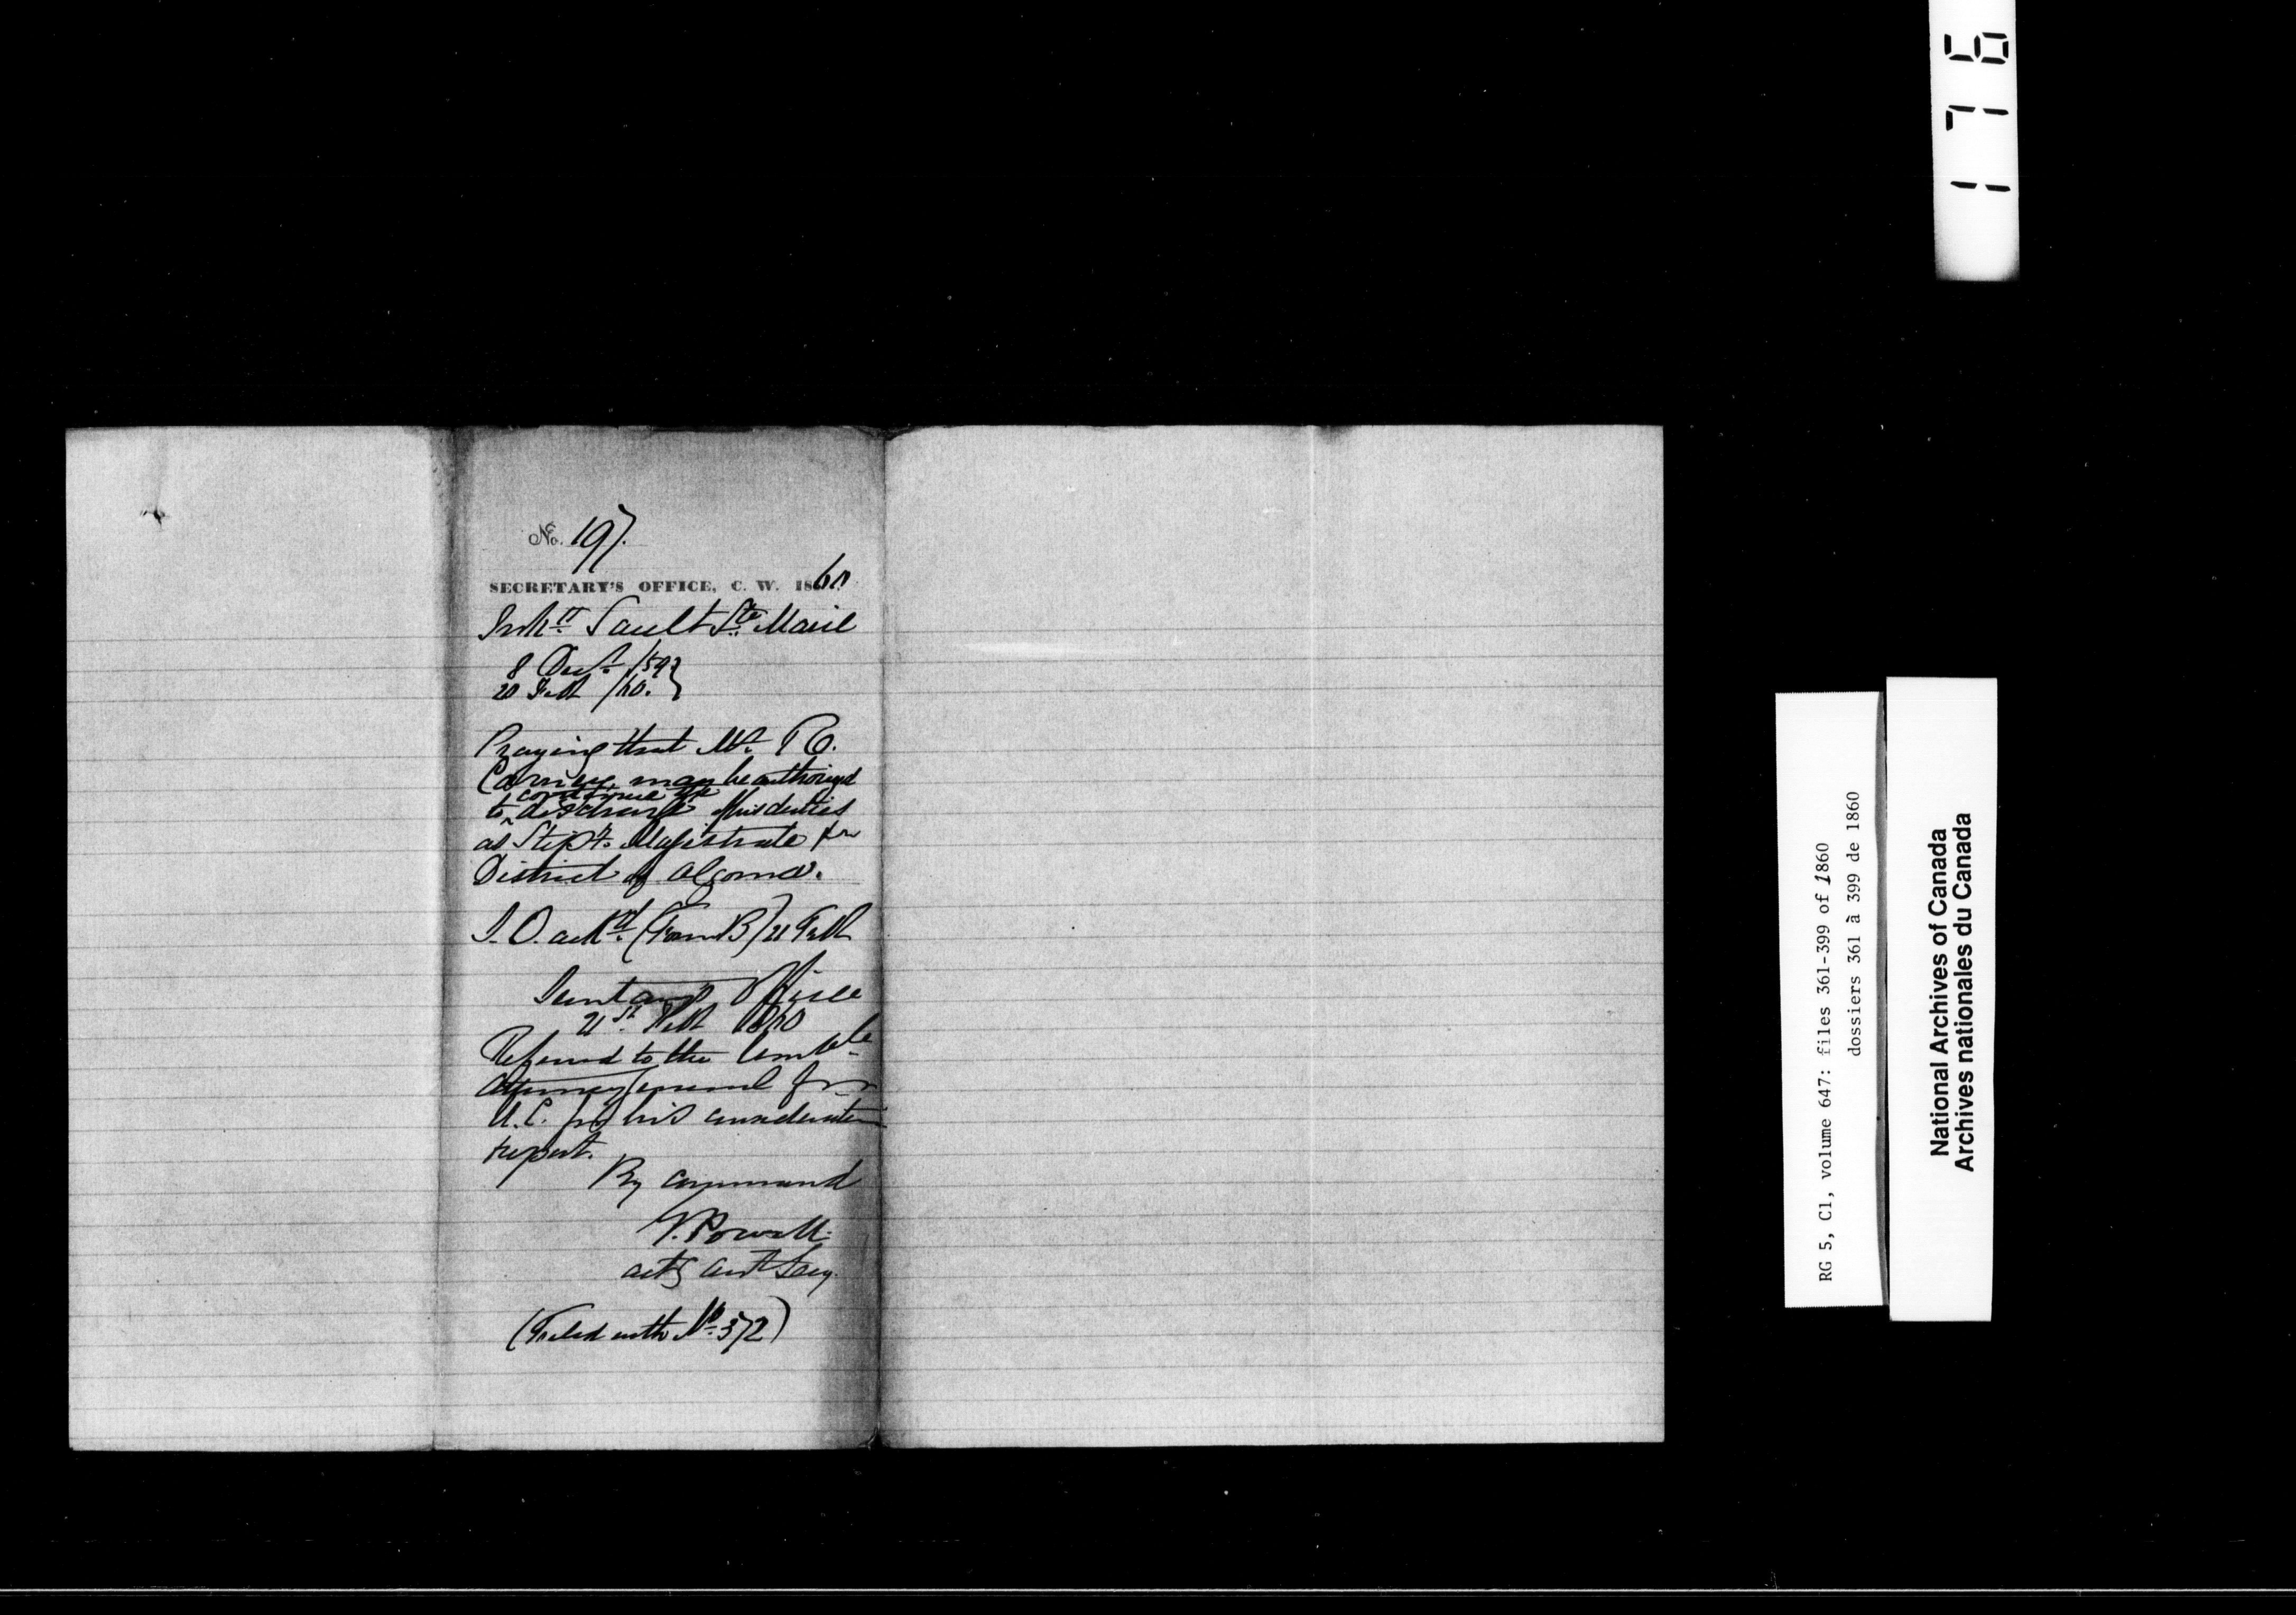 No. 197.
SECRETARY'S OFFICE, C. W. 1860.
Inhts Sault Ste Marie
8 Decr /59
20 Feb /60. }
Praying that Mr. R.
Carney may be authorized
continue the
to ^ discharge of his duties
as Stipy. Magistrate for
District of Algoma.
ackd. (Form B) 21 Feb
Secretary's Office
21st. Feb 1860
Referred to the Honble
Attorney General for
U.C. for his consideration
report.
By command
Powell
actg asst Secy.
(Filed with No. 372)
176
RG 5, C1, volume 647: files 361-399 of 1860
dossiers 361 à 399 de 1860
National Archives of Canada
Archives nationales du Canada